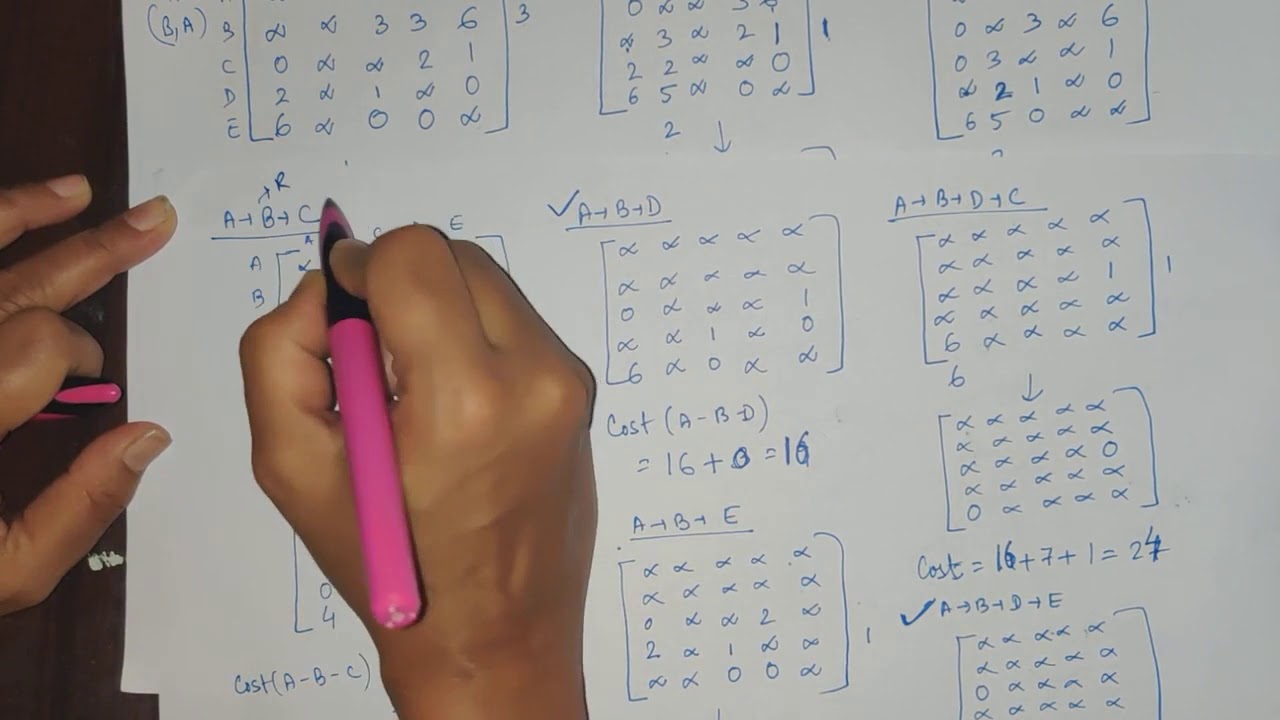 (B,A) B α α 3 3 6 3
C 0 α α 2 1
D 2 α 1 α 0
E 6 α 0 0 α
R
A→B→C
A C E
A α
B
0
4
Cost(A-B-C)
α 3 α 2 1 1
2 2 α α 0
6 5 α 0 α
2 ↓
✓A→B→D
α α α α α
α α α α α
0 α α α 1
α α 1 α 0
6 α 0 α α
Cost (A-B-D)
= 16+0 = 16
A→B→E
α α α α α
α α α α α
0 α α 2 α
2 α 1 α α 1
α α 0 0 α
↓
0 α 3 α 6
0 3 α α 1
α 2 1 α 0
6 5 0 α α
A→B→D→C
α α α α α
α α α α α
α α α α 1 1
α α α α α
6 α α α α
6 ↓
α α α α α
α α α α α
α α α α 0
α α α α α
0 α α α α
Cost = 16+7+1 = 24
✓A→B→D→E
α α α α α
α α α α α
0 α α α α
α α α α α